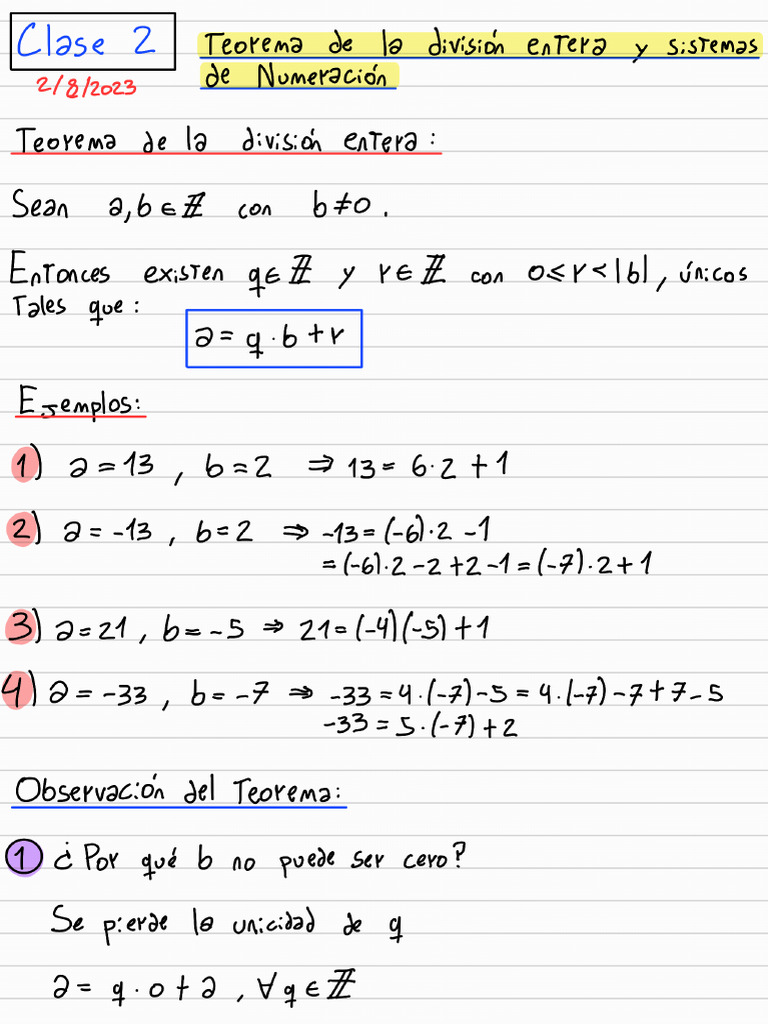 Clase 2
2/8/2023
Teorema de la división entera y sistemas
de Numeración
Teorema de la división entera:
Sean a,b∈ℤ con b≠0.
Entonces existen q∈ℤ y r∈ℤ con 0≤r<|b|, únicos
Tales que:
a = q·b+r
Ejemplos:
1) a=13, b=2 ⇒ 13= 6·2+1
2) a=-13, b=2 ⇒ -13=(-6)·2-1
=(-6)·2-2+2-1=(-7)·2+1
3) a=21, b=-5 ⇒ 21=(-4)(-5)+1
4) a=-33, b=-7 ⇒ -33=4·(-7)-5=4·(-7)-7+7-5
-33=5·(-7)+2
Observación del Teorema:
1 ¿Por qué b no puede ser cero?
Se pierde la unicidad de q
a= q·0+a, ∀q∈ℤ